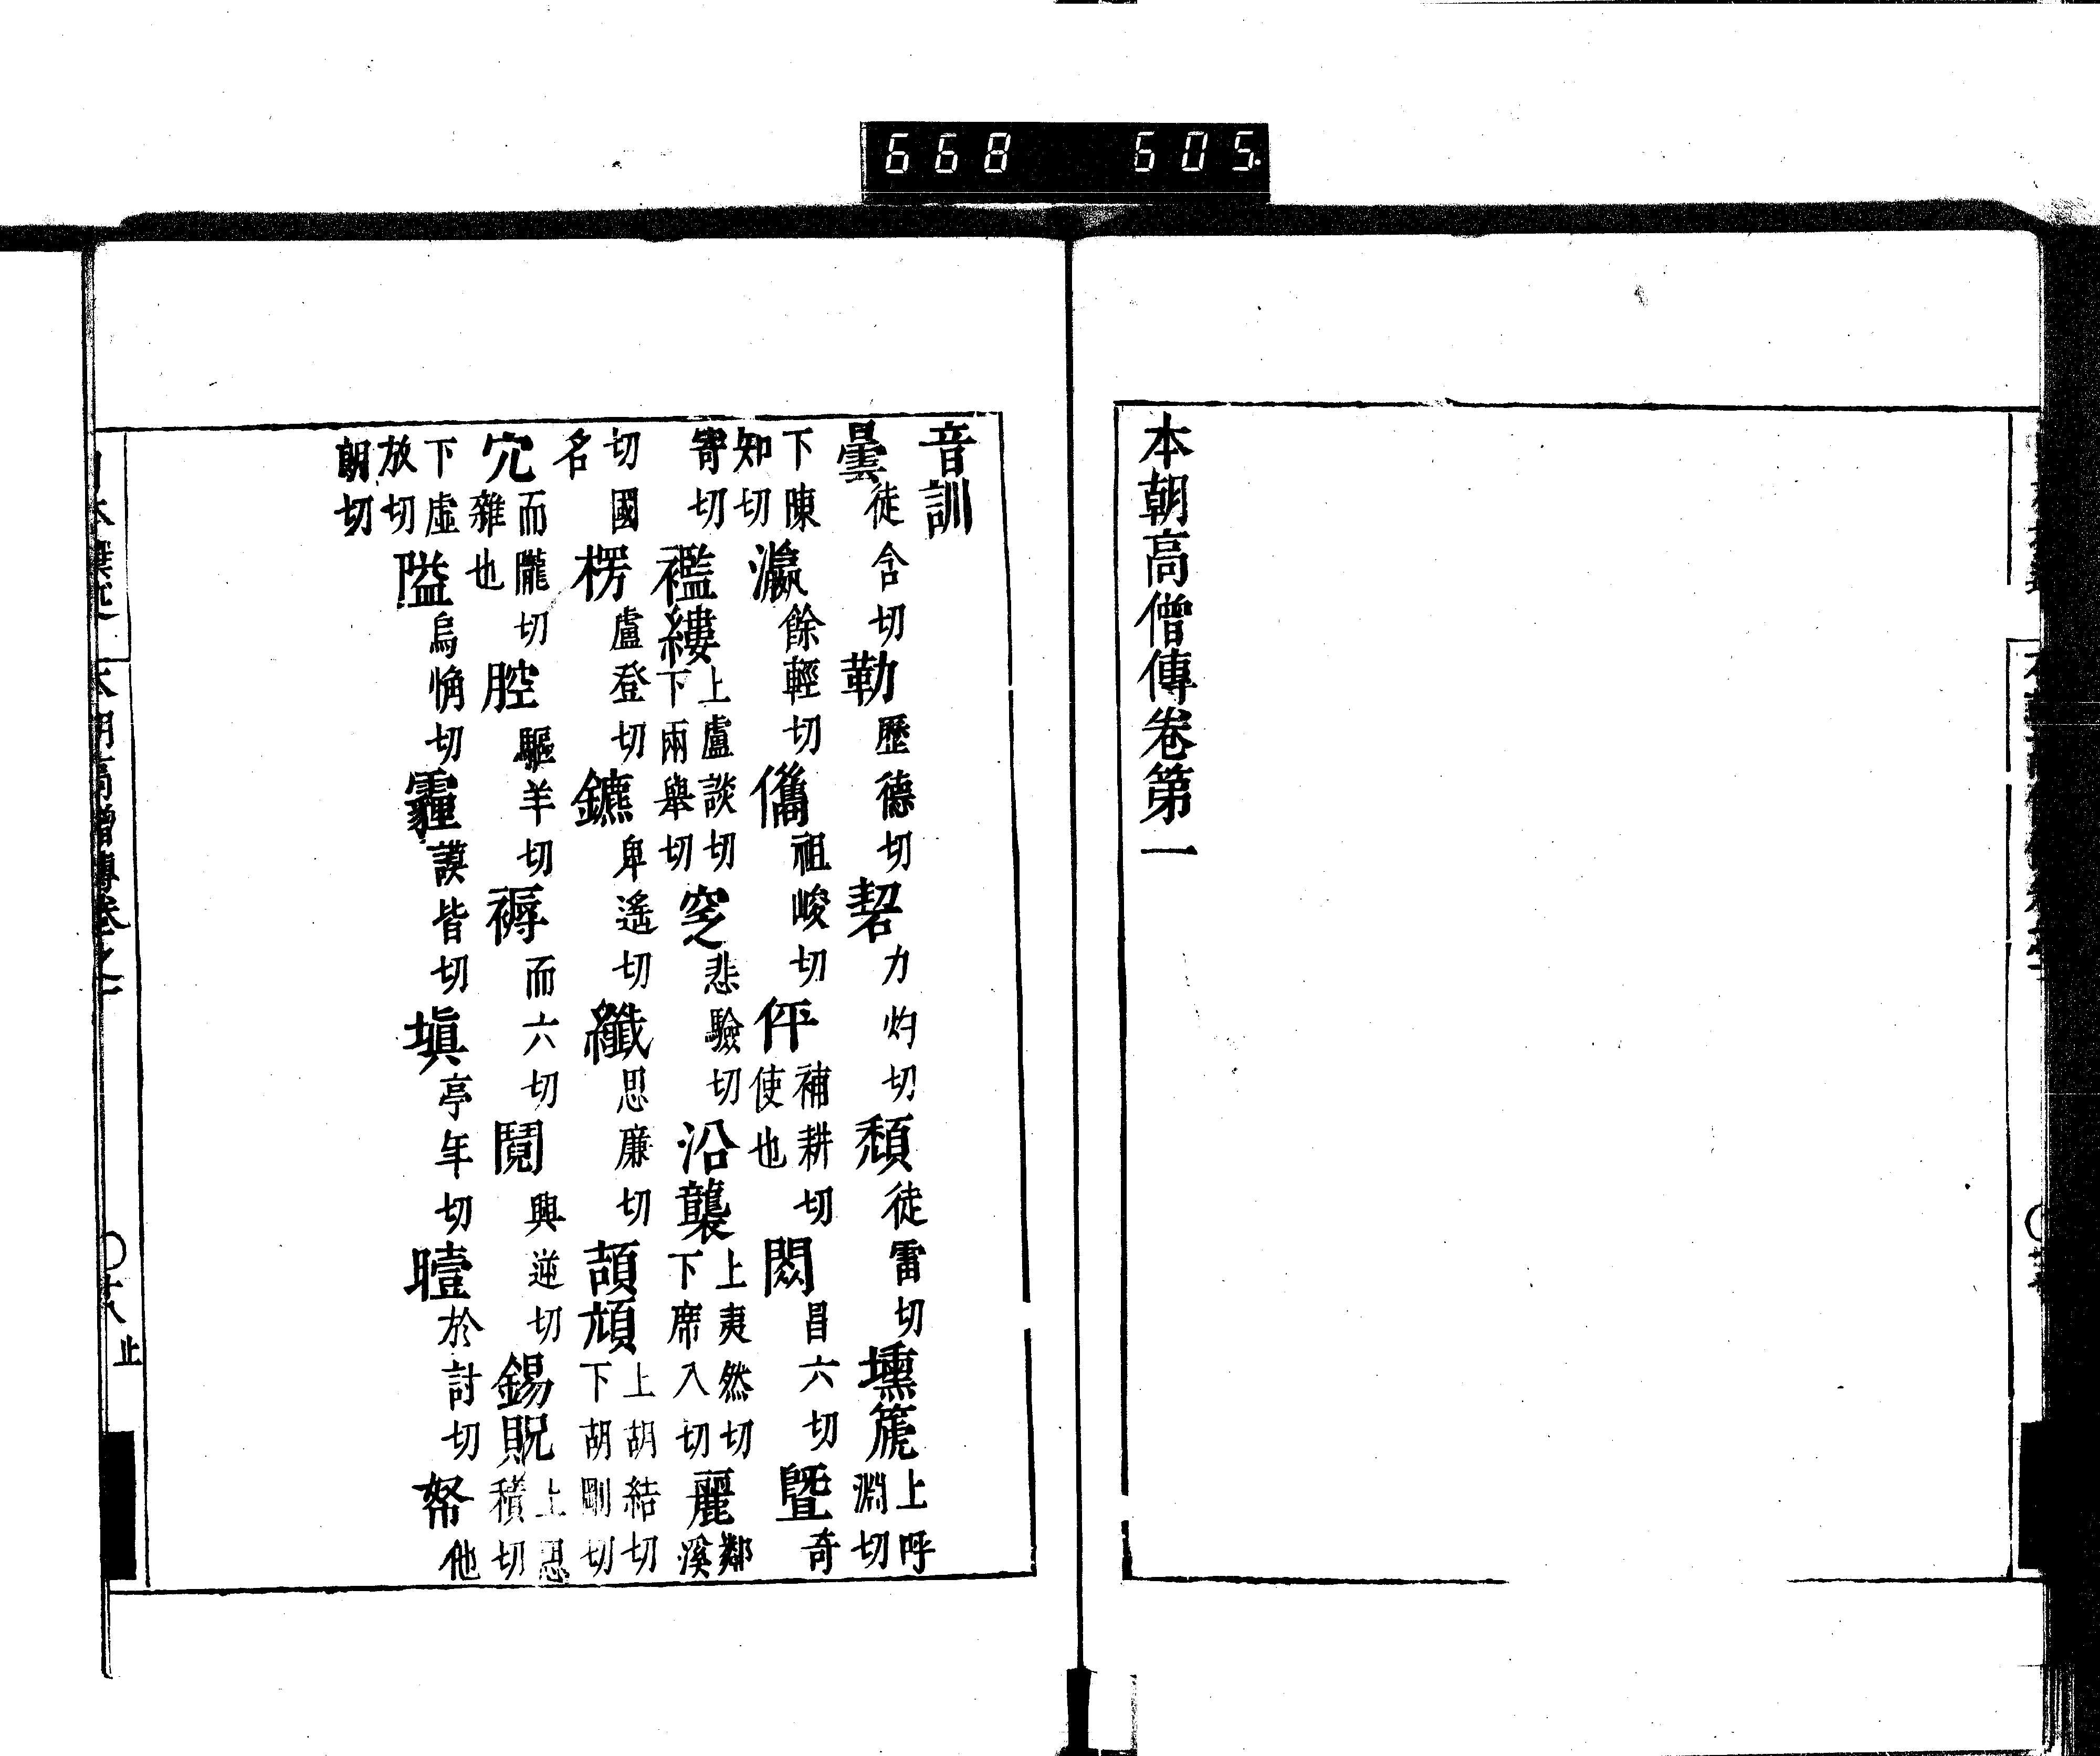 668 605
本朝高僧傳卷第一
音訓
曇徒含切勒歷德切䂮力灼切頽徒雷切壎篪上呼淵切
下陳知切瀛餘輕切儁祖峻切伻補耕切使也閦昌六切曁奇
寄切襤縷上盧談切下兩舉切窆悲驗切沿襲上夷然切下席入切麗鄰溪
切國名楞盧登切鑣卑遙切纖思廉切頡頏上胡結切下胡剛切
宂而隴切雜也腔驅羊切褥而六切鬩興逆切錫貺上思積切
下虛放切隘烏懈切霾謨皆切塡亭年切曀於計切帑他
朗切
本朝高僧傳卷之一
○十八
止